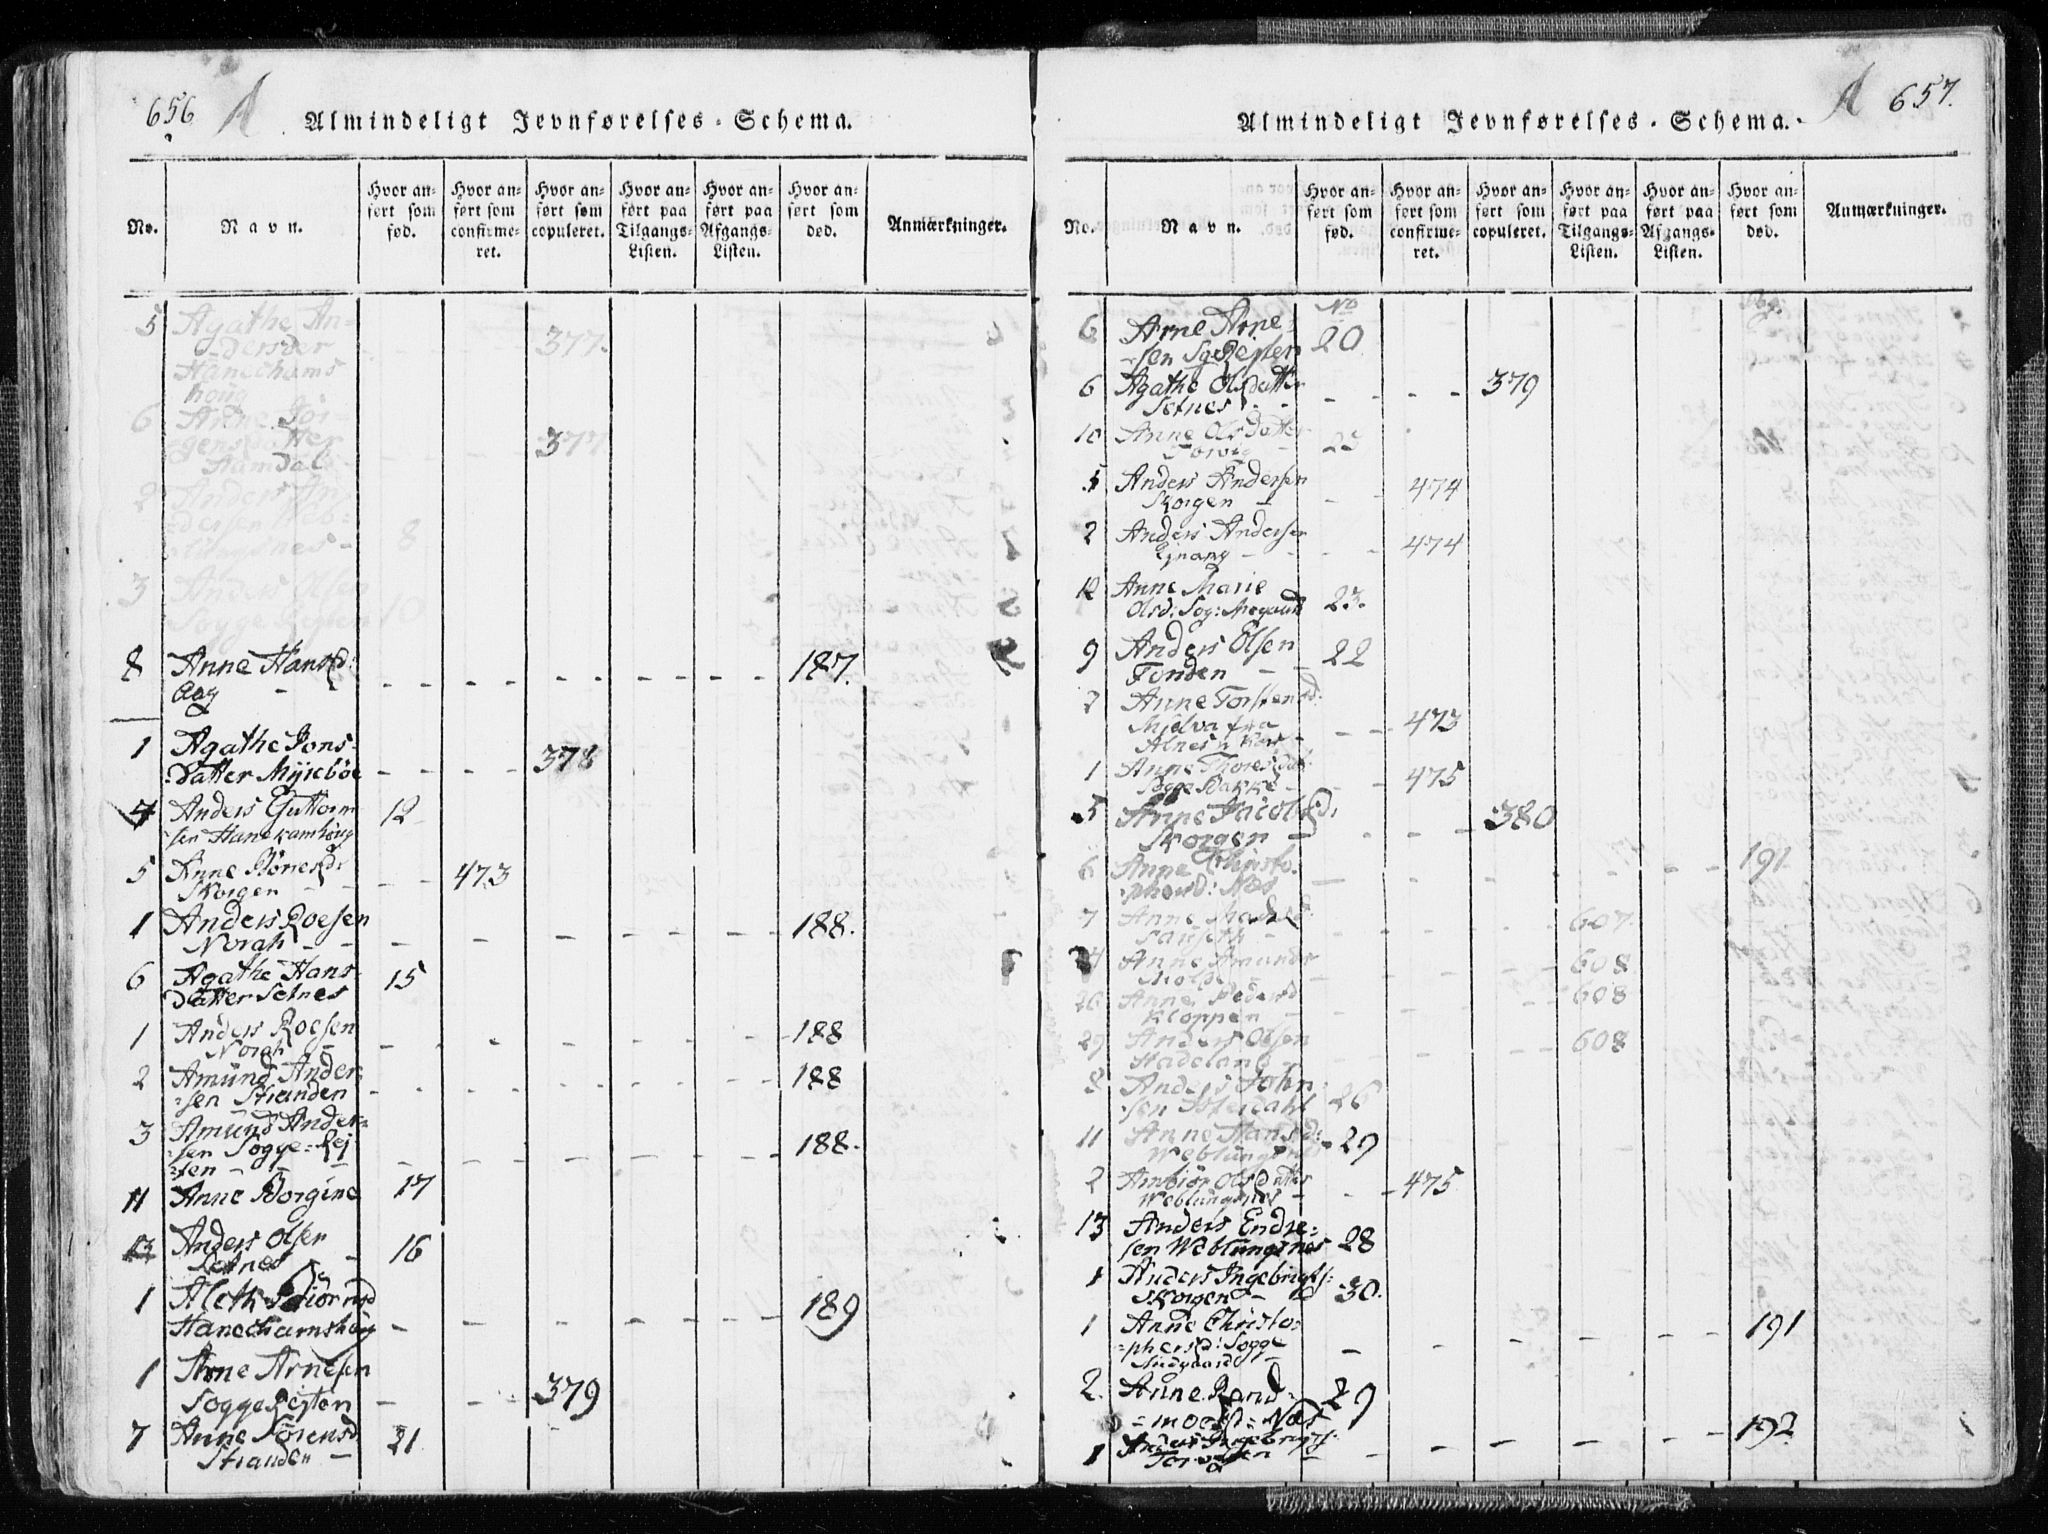 656 A
Almindeligt Jevnførelses-Schema.
No.
Navn.
Hvor an-
ført som
fød.
Hvor an-
ført som
confirme-
ret.
Hvor an-
ført som
copuleret.
Hvor an-
ført paa
Tilgangs-
Listen.
Hvor an-
ført paa
Afgangs-
Listen.
Hvor an-
ført som
død.
Anmærkninger.
5 Agathe An-
dersder
Hanechams
houg 377.
6 Anne Jör-
gensdatter
Hamdal 377
2 Anders An-
dersen Web-
lungsnes 8
3 Anders Olsen
Sogge Rejsten 10
8 Anne Hansd:
Aag 187.
1 Agathe Jons-
datter Myrebøe 378
4 Anders Guttorm
sen Hanekamhoug 12
5 Anne
Skorgen 473
1 Anders Roesen
Norah 188.
6 Agathe Hans
datter Setnes 15
1 Anders Roesen
Norah 188
2 Amund Ander
sen Stranden 188
3 Amund Ander-
sen Sogge-Rej
sten 188.
11 Anne Borgine 17
13 Anders Olsen
Setnes 16
1 Aleth Biörnsd
Hanechamshoug 189
1 Arne Arnesen
Sogge Rejsten 379
7 Anne Sörensd
Stranden 21
A 657.
Almindeligt Jevnførelses-Schema.
No.
Navn.
Hvor an-
ført som
fød.
Hvor an-
ført som
confirme-
ret.
Hvor an-
ført som
copuleret.
Hvor an-
ført paa
Tilgangs-
Listen.
Hvor an-
ført paa
Afgangs-
Listen.
Hvor an-
ført som
død.
Anmærkninger.
No
6 Arne Arne-
sen Sg Rejsten 20
6 Agathe Olsdatter
Setnes 379
10 Anne Olsdatter
23
5 Anders Andersen
Skorgen 474
2 Anders Andersen
474
12 Anne Marie
Olsd: Sog: Moegaard 23.
9 Anders Olsen
Fonden 22
2 Anne Torstensd:
Mjelva fra
Alnes 473
1 Anne Thoresdat
Sogge Bakke 475
5 Anne Jacobsd:
Skorgen 380
6 Anne Christo-
phersd: Næs 191.
7 Anne
607.
4 Anne Amunds
Molde 608
26 Anne Pedersd
Kloppen 608
29 Anders Olsen
Hadeland 608
8 Anders John-
sen Isterdahl 26
11 Anne Hansd:
Weblungsnes 29
2 Anbiör Olsdatter
Weblungsnes 475
13 Anders Endre-
sen Weblungsnes 28
1 Anders Ingebrigts:
Skorgen 30.
1 Anne Christo-
phersd: Sogge
Nedgaard 191
2. Anne Rand-
moesd: Næs 29
1 Anders Ingebrigts:
192.